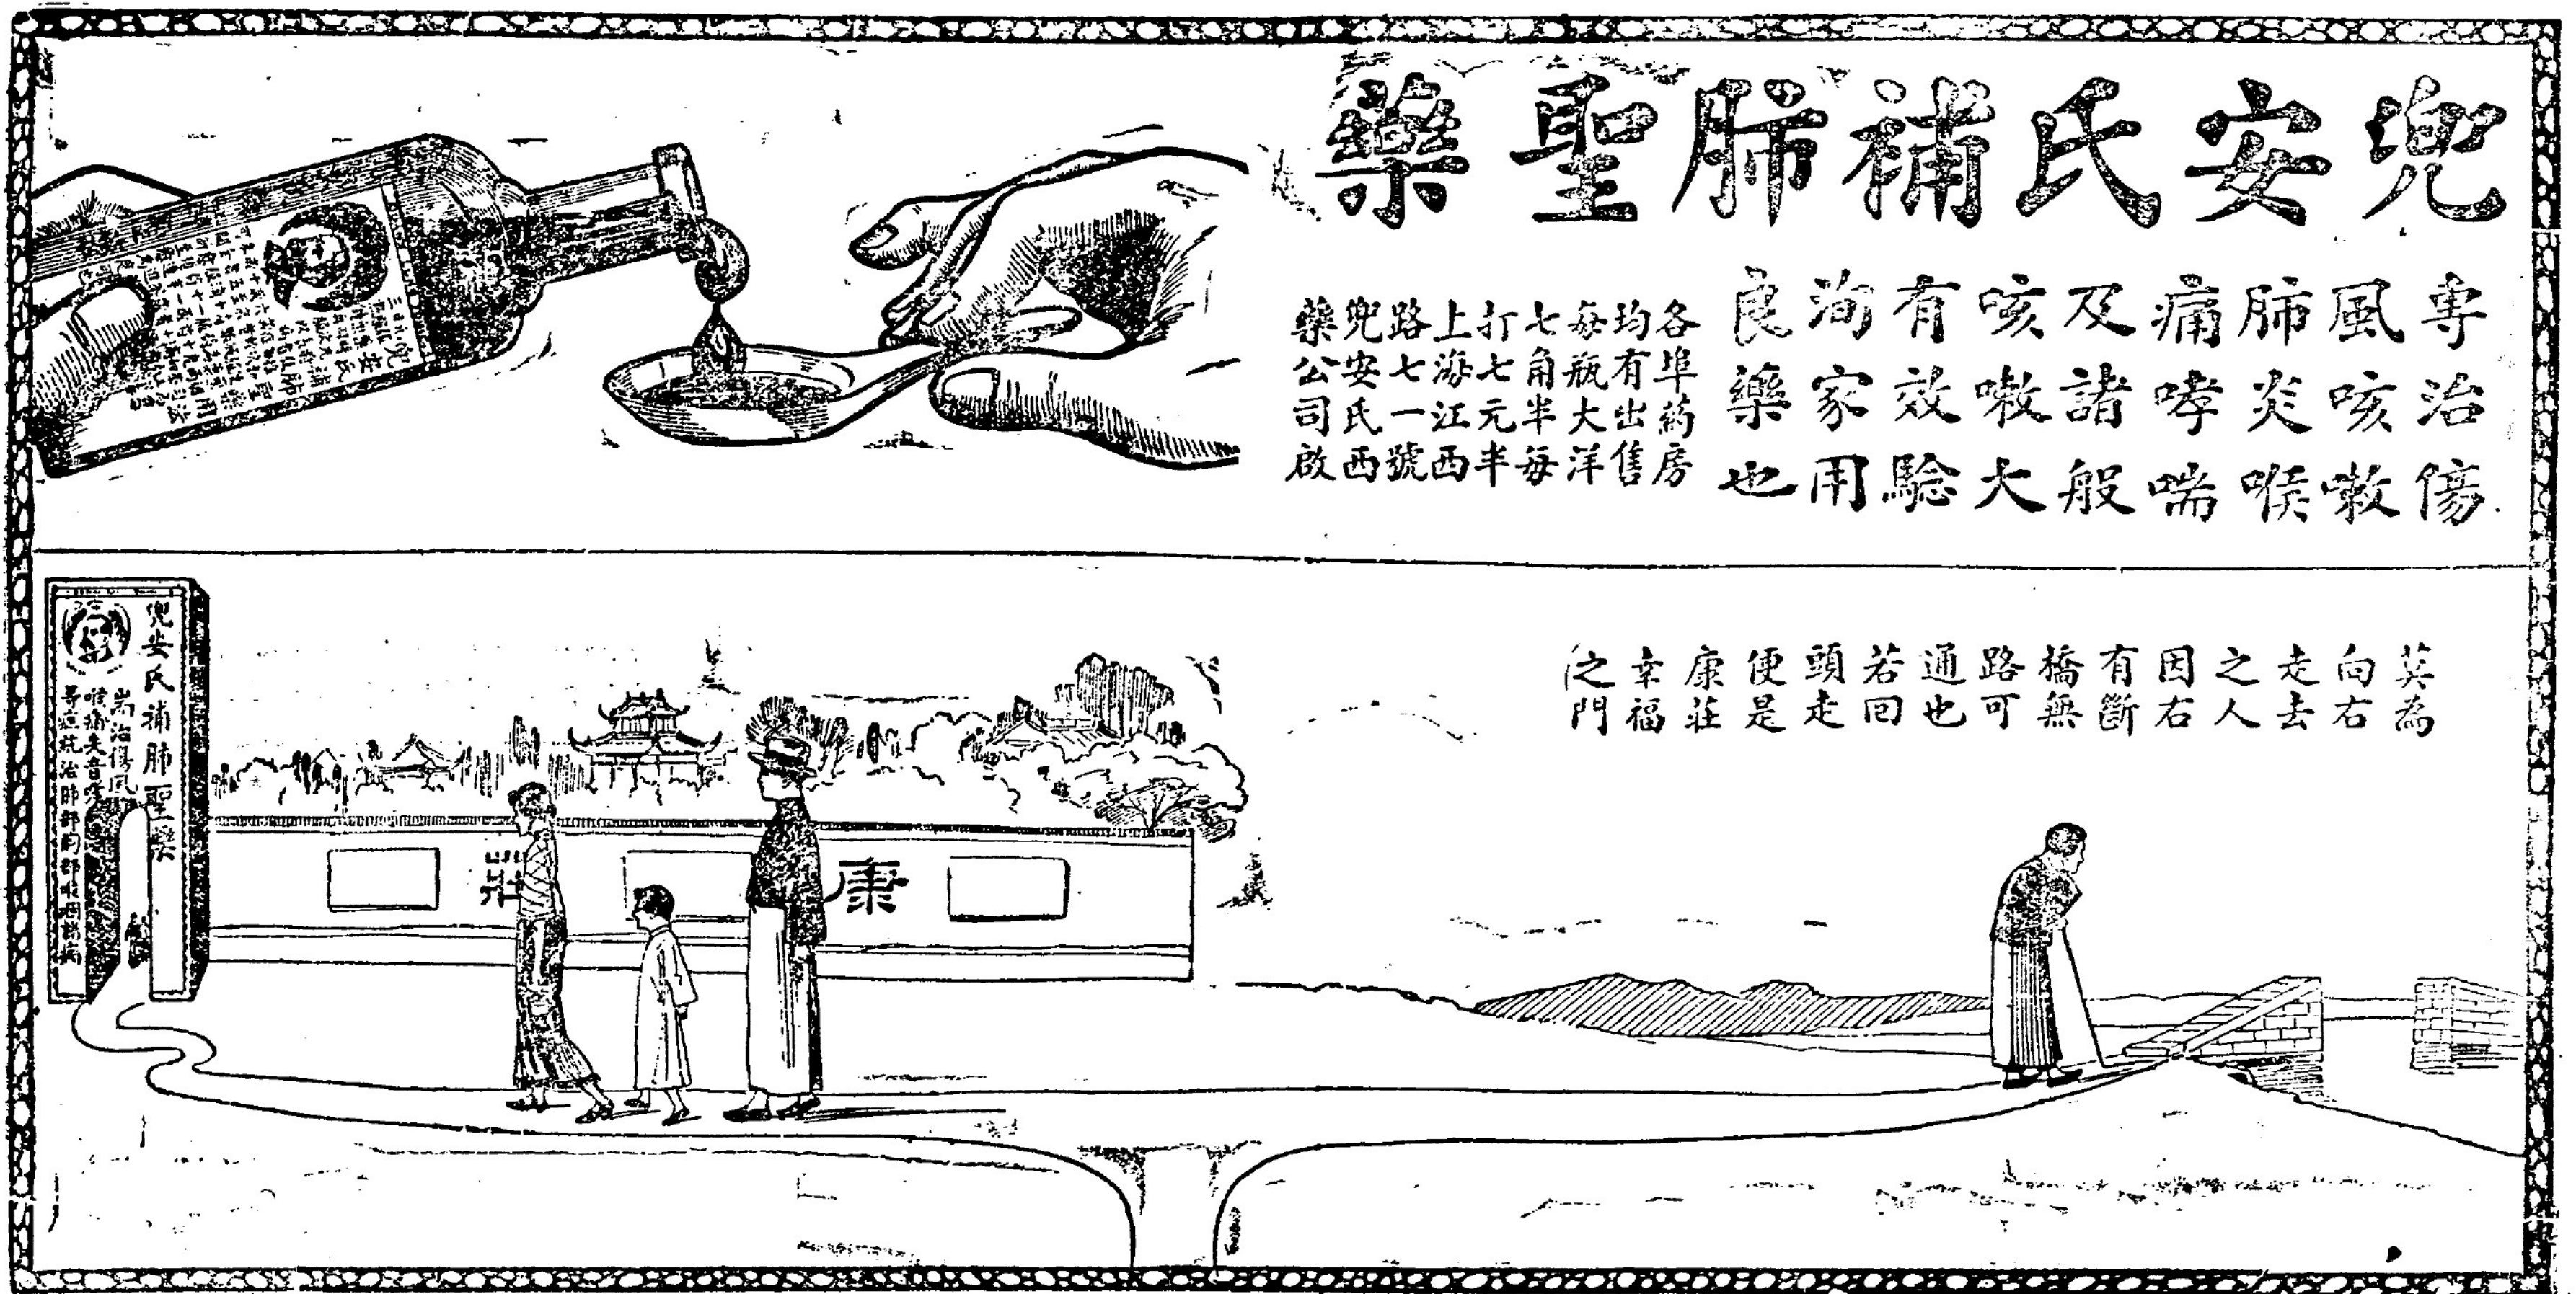 兜安氏補肺聖藥
專治傷
風咳嗽
肺炎喉
痛哮喘
及諸般
咳嗽大
有效驗
洵家用
良藥也
各埠葯房
均有出售
每瓶大洋
七角半每
打七元半
上海江西
路七一號
兜安氏西
藥公司啟
莫為
向右
走去
之人
因右
有斷
橋無
路可
通也
若回
頭走
便是
康莊
幸福
之門
康
莊
兜安氏補肺聖藥
耑治傷風